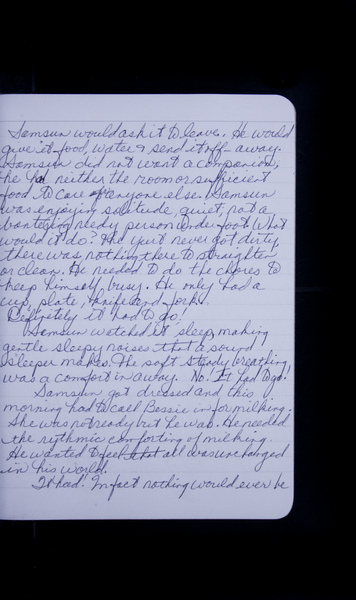 Samsun would ask it to leave. He would
give it food, water & send it off - away.
Samsun did not want a companion,
he had neither the room or sufficient
food to care for anyone else. Samsun
was enjoying solitude, quiet, not a
needy person under foot. What
would it do? The yurt never got dirty,
there was nothing there to straighten
or clean. He needed to do the chores to
keep himself busy. He only had a
cup, plate, knife and fork.
Definitely it had to go!
Samsun watched it sleep, making
gentle sleepy noises that a sound
sleeper makes. The soft steady breathing
was a comfort in a way. No! It had to go!
Samsun got dressed and this
morning had to call Bessie in for milking.
She was not ready but he was. He needed
the rythmic comforting of milking.
He wanted to feel that all was unchanged
in his world.
It had! In fact nothing would ever be